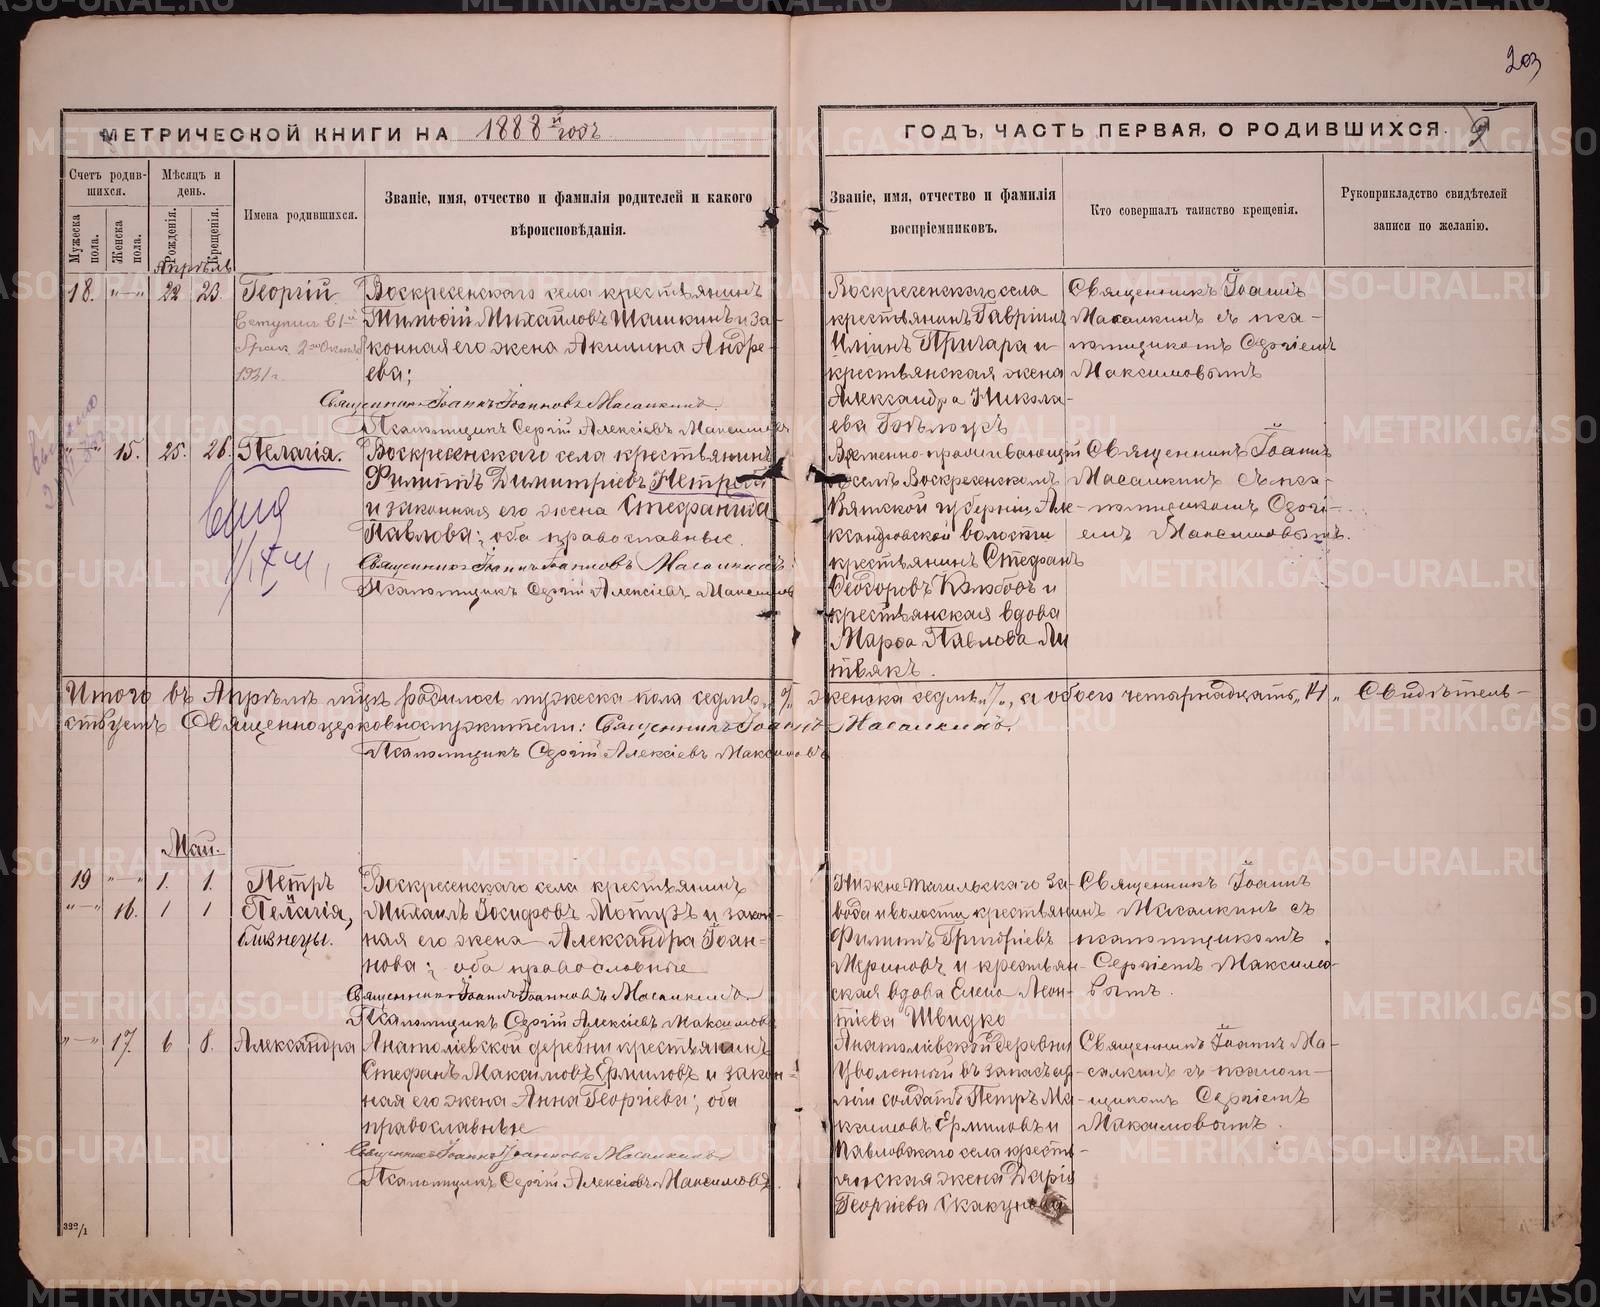 203
МЕТРИЧЕСКОЙ КНИГИ НА 1888й годъ
ГОДЪ, ЧАСТЬ ПЕРВАЯ, О РОДИВШИХСЯ.
Счетъ родив-
шихся.
Мужеска пола.
Женска пола.
Мѣсяцъ и день.
Рожденія.
Крещенія.
Имена родившихся.
Званіе, имя, отчество и фамилія родителей и какого
вѣроисповѣданія.
Званіе, имя, отчество и фамилія
воспріемниковъ.
Кто совершалъ таинство крещенія.
Рукоприкладство свидѣтелей
записи по желанію.
Апрѣль
18. "—" 22 23. Георгій
Вступил в 1й
брак 2го
1931 г.
Воскресенскаго села крестьянинъ
Михайловъ Шашкинъ и за-
конная его жена Акилина Андре-
ева;
Священникъ Іоаннъ Іоанновъ Масалкинъ.
Псаломщикъ Сергій Алексіевъ Максимовъ
Воскресенскаго села
крестьянинъ Гавріилъ
Ильинъ Пригара и
крестьянская жена
Александра Никола-
ева
Священникъ Іоаннъ
Масалкинъ съ пса-
ломщикомъ Сергіемъ
Максимовымъ
"—" 15. 25. 26. Пелагія.
Воскресенскаго села крестьянинъ
Филиппъ Димитріевъ
и законная его жена Стефанида
Павлова; оба православные.
Священникъ Іоаннъ Іоанновъ Масалкинъ.
Псаломщикъ Сергій Алексіевъ Максимовъ
Временно проживающій
въ селѣ Воскресенскомъ
Вятской губерніи Але-
ксандровской волости
крестьянинъ Стефанъ
Ѳеодоровъ и
крестьянская вдова
Марѳа Павлова Ли-
твякъ.
Священникъ Іоаннъ
Масалкинъ съ пса-
ломщикомъ Сергі-
емъ Максимовымъ.
Итого въ Апрѣлѣ мцѣ родилось мужеска пола седмь „7„ женска седмь „7„, а обоего четырнадцать „14„ Свидѣтель-
ствуемъ Священноцерковнослужители: Священникъ Іоаннъ Масалкинъ.
Псаломщикъ Сергій Алексіевъ Максимовъ
Май.
19 "—" 1. 1. Петръ
"—" 16. 1 1 Пелагія,
близнецы.
Воскресенскаго села крестьянинъ
Михаилъ Іосифовъ Мотузъ и закон-
ная его жена Александра Іоан-
нова; оба православные
Священникъ Іоаннъ Іоанновъ Масалкинъ
Псаломщикъ Сергій Алексіевъ Максимовъ
Нижне Тагильскаго за-
вода и волости крестьянинъ
Филиппъ Григоріевъ
Мериновъ и крестьян-
ская вдова Елена Леон-
тіева Швидко
Священникъ Іоаннъ
Масалкинъ съ
псаломщикомъ
Сергіемъ Максимо-
вымъ.
"—" 17. 6 8. Александра
Анатоліевской деревни крестьянинъ
Стефанъ Максимовъ Ермиловъ и закон-
ная его жена Анна Георгіева; оба
православные
Священникъ Іоаннъ Іоанновъ Масалкинъ
Псаломщикъ Сергій Алексіевъ Максимовъ.
Анатоліевской деревни
Уволенный въ запасъ ар-
міи солдатъ Петръ Ма-
ксимовъ Ермиловъ и
Павловскаго села кресть-
янская жена Дарія
Георгіева Скакунова
Священникъ Іоаннъ Ма-
салкинъ съ псалом-
щикомъ Сергіемъ
Максимовымъ.
392/1